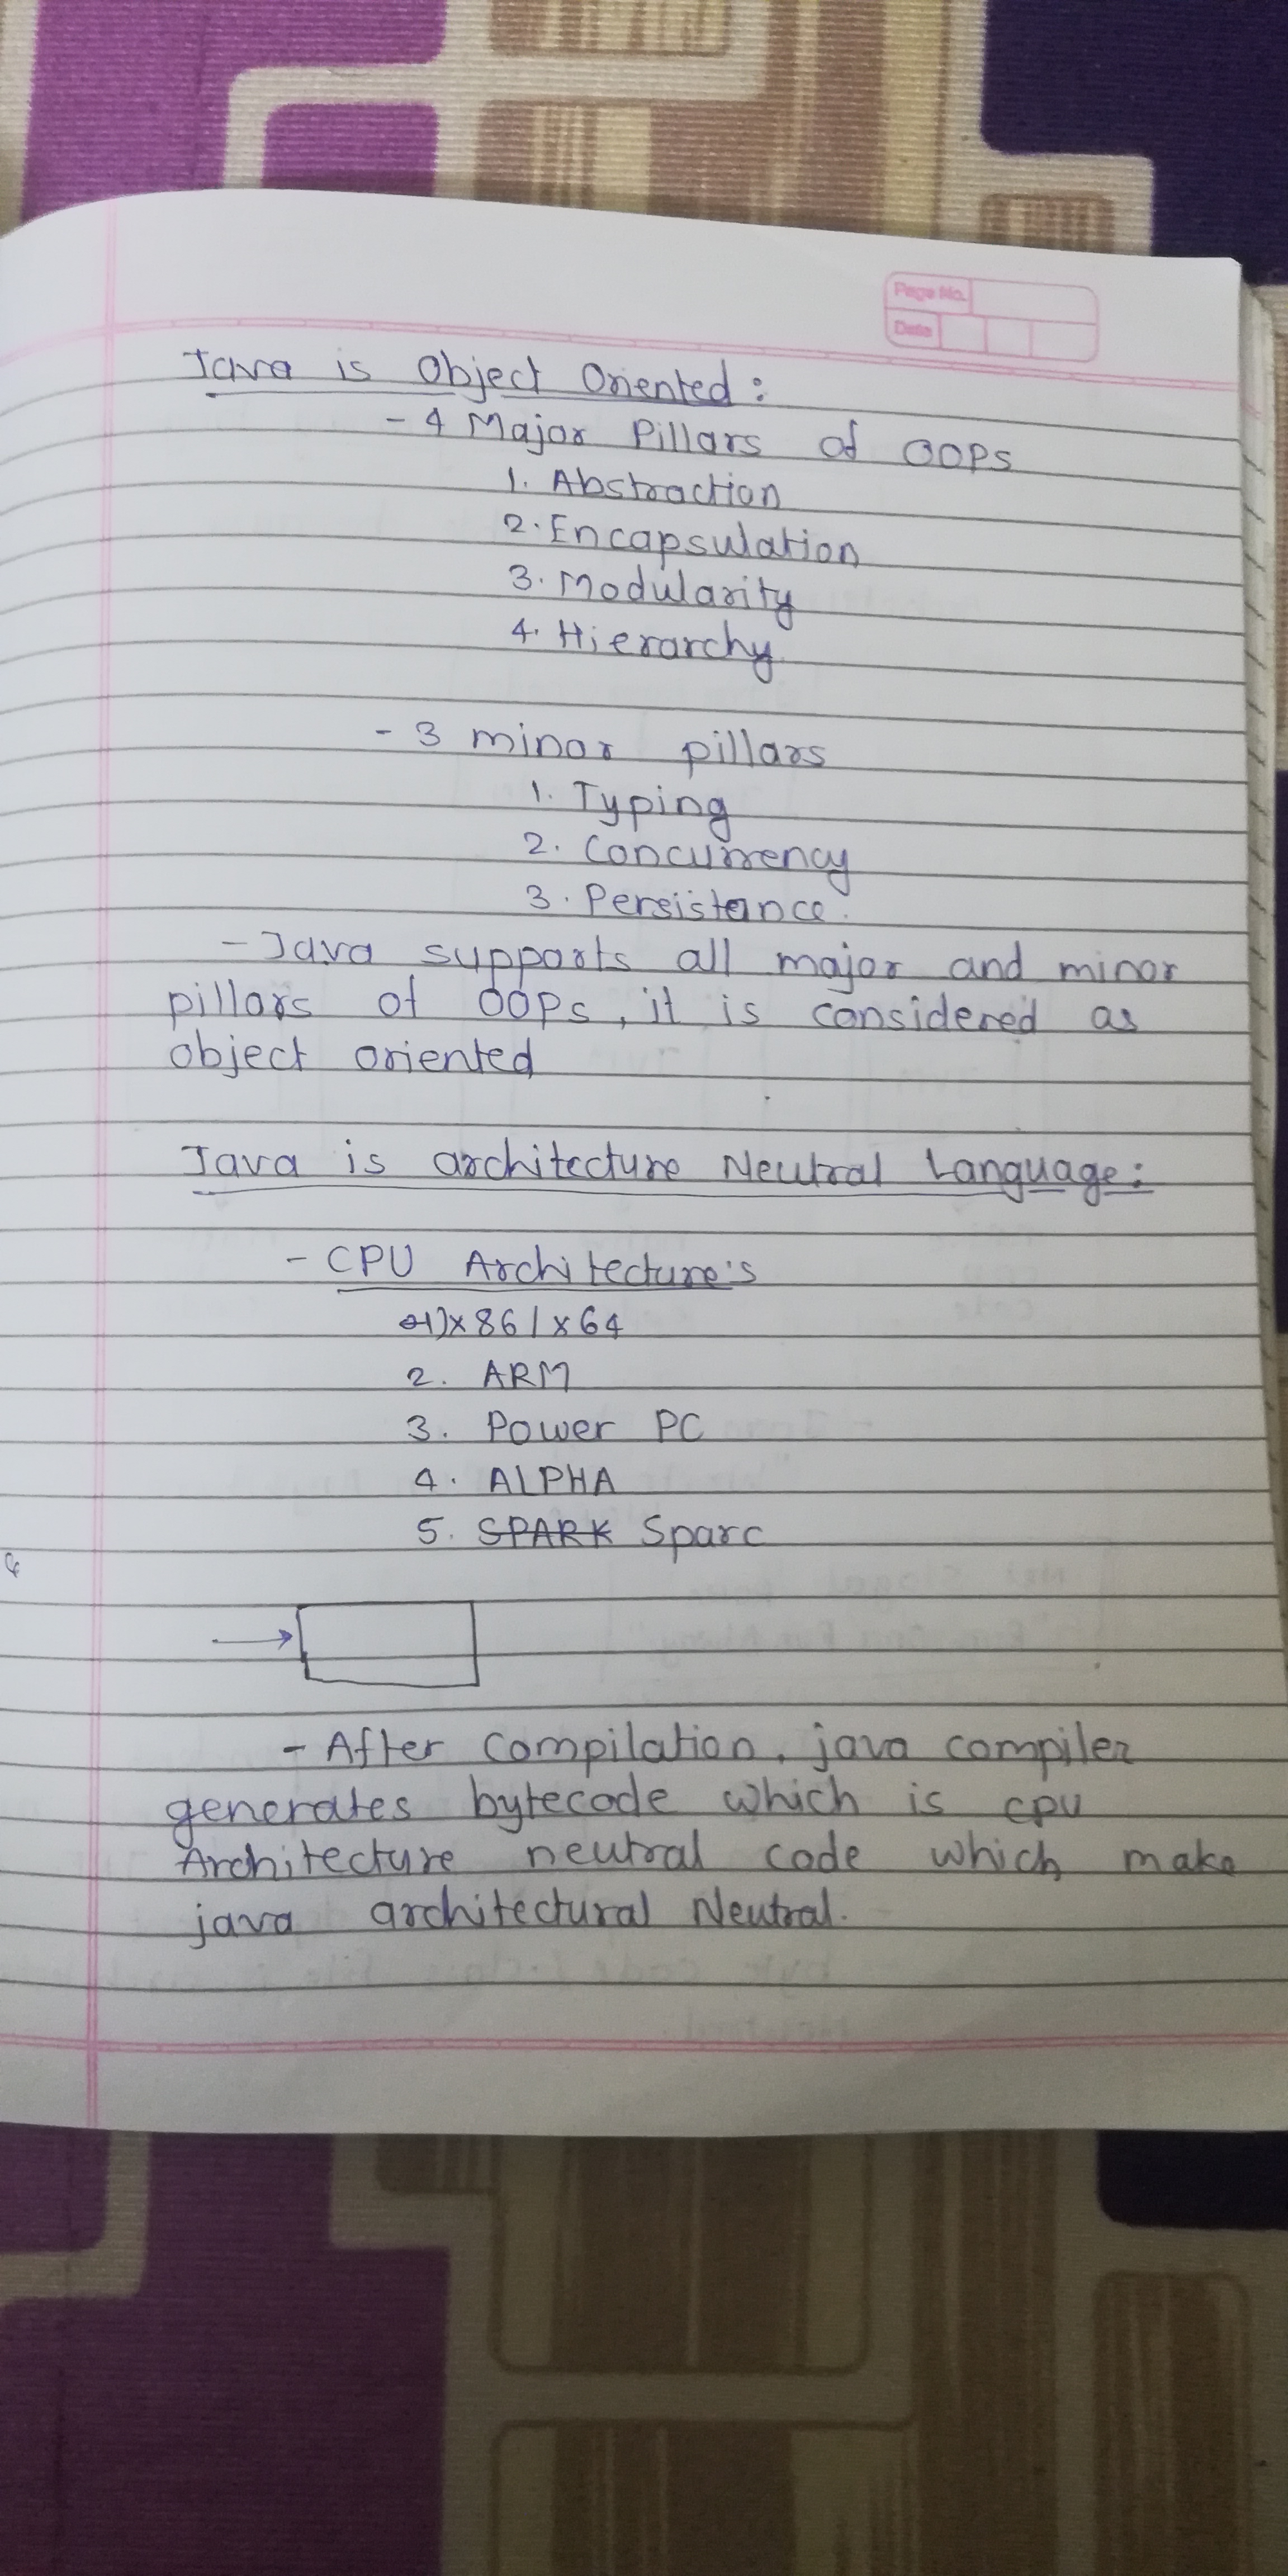 Page No.
Date
Java is Object Oriented :
- 4 Major Pillars of OOPS
1. Abstraction
2. Encapsulation
3. Modularity
4. Hierarchy
- 3 minor pillars
1. Typing
2. Concurrency
3. Persistance.
- Java supports all major and minor
pillars of OOPs, it is considered as
object oriented
Java is architecture Neutral Language:
- CPU Architecture's
1) x86 / x64
2. ARM
3. Power PC
4. ALPHA
5. SPARK Sparc
- After compilation, java compiler
generates bytecode which is cpu
Architecture neutral code which make
java architectural Neutral.